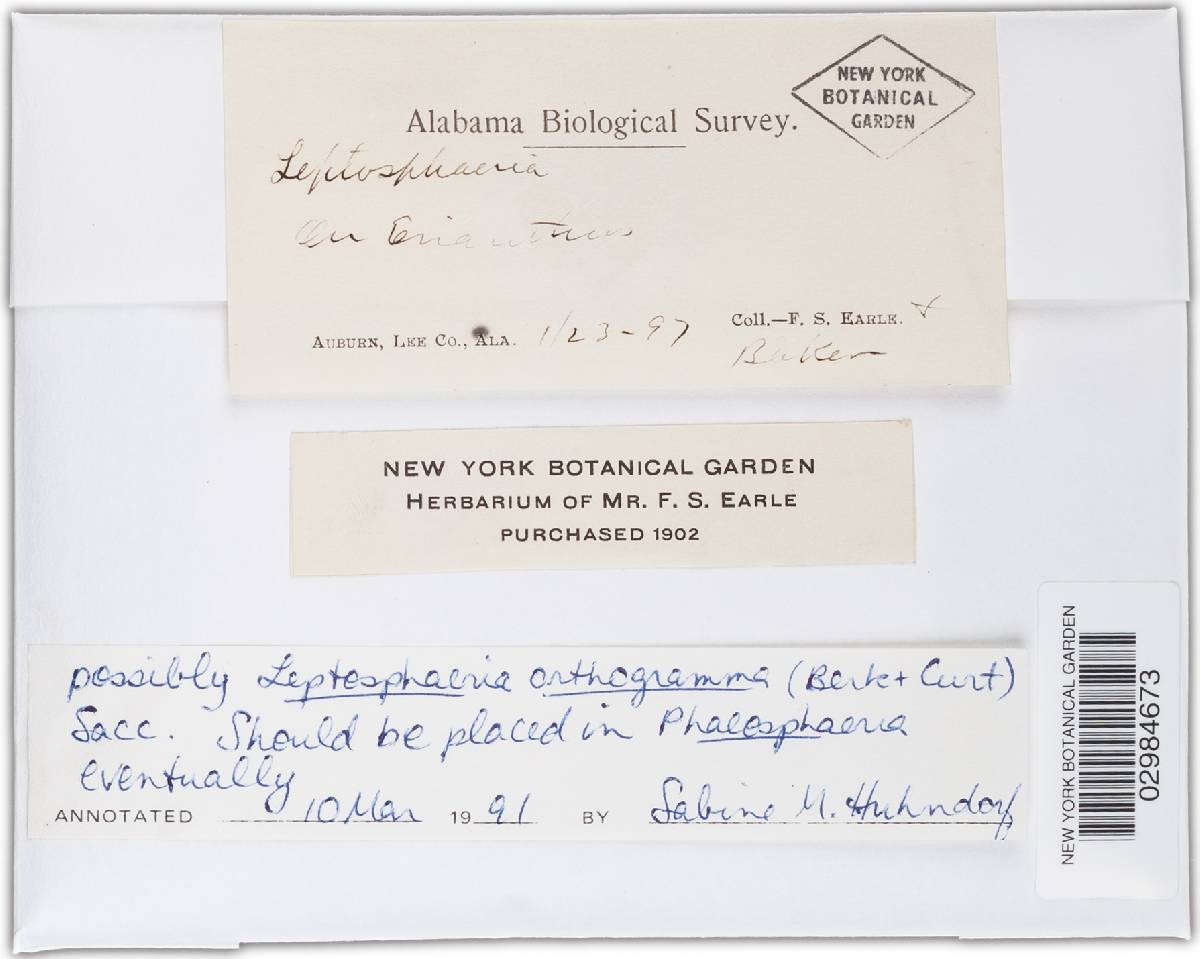 NEW YORK
BOTANICAL
GARDEN
Alabama Biological Survey.
Leptosphaeria
On Erianthus
Auburn, Lee Co., Ala. 1/23-97
Coll.—F. S. Earle. +
Baker
NEW YORK BOTANICAL GARDEN
Herbarium of Mr. F. S. Earle
PURCHASED 1902
possibly Leptosphaeria orthogramma (Berk + Curt)
Sacc. Should be placed in Phaeosphaeria
eventually
ANNOTATED 10 Mar 1991 BY Sabine M. Huhndorf
NEW YORK BOTANICAL GARDEN
02984673